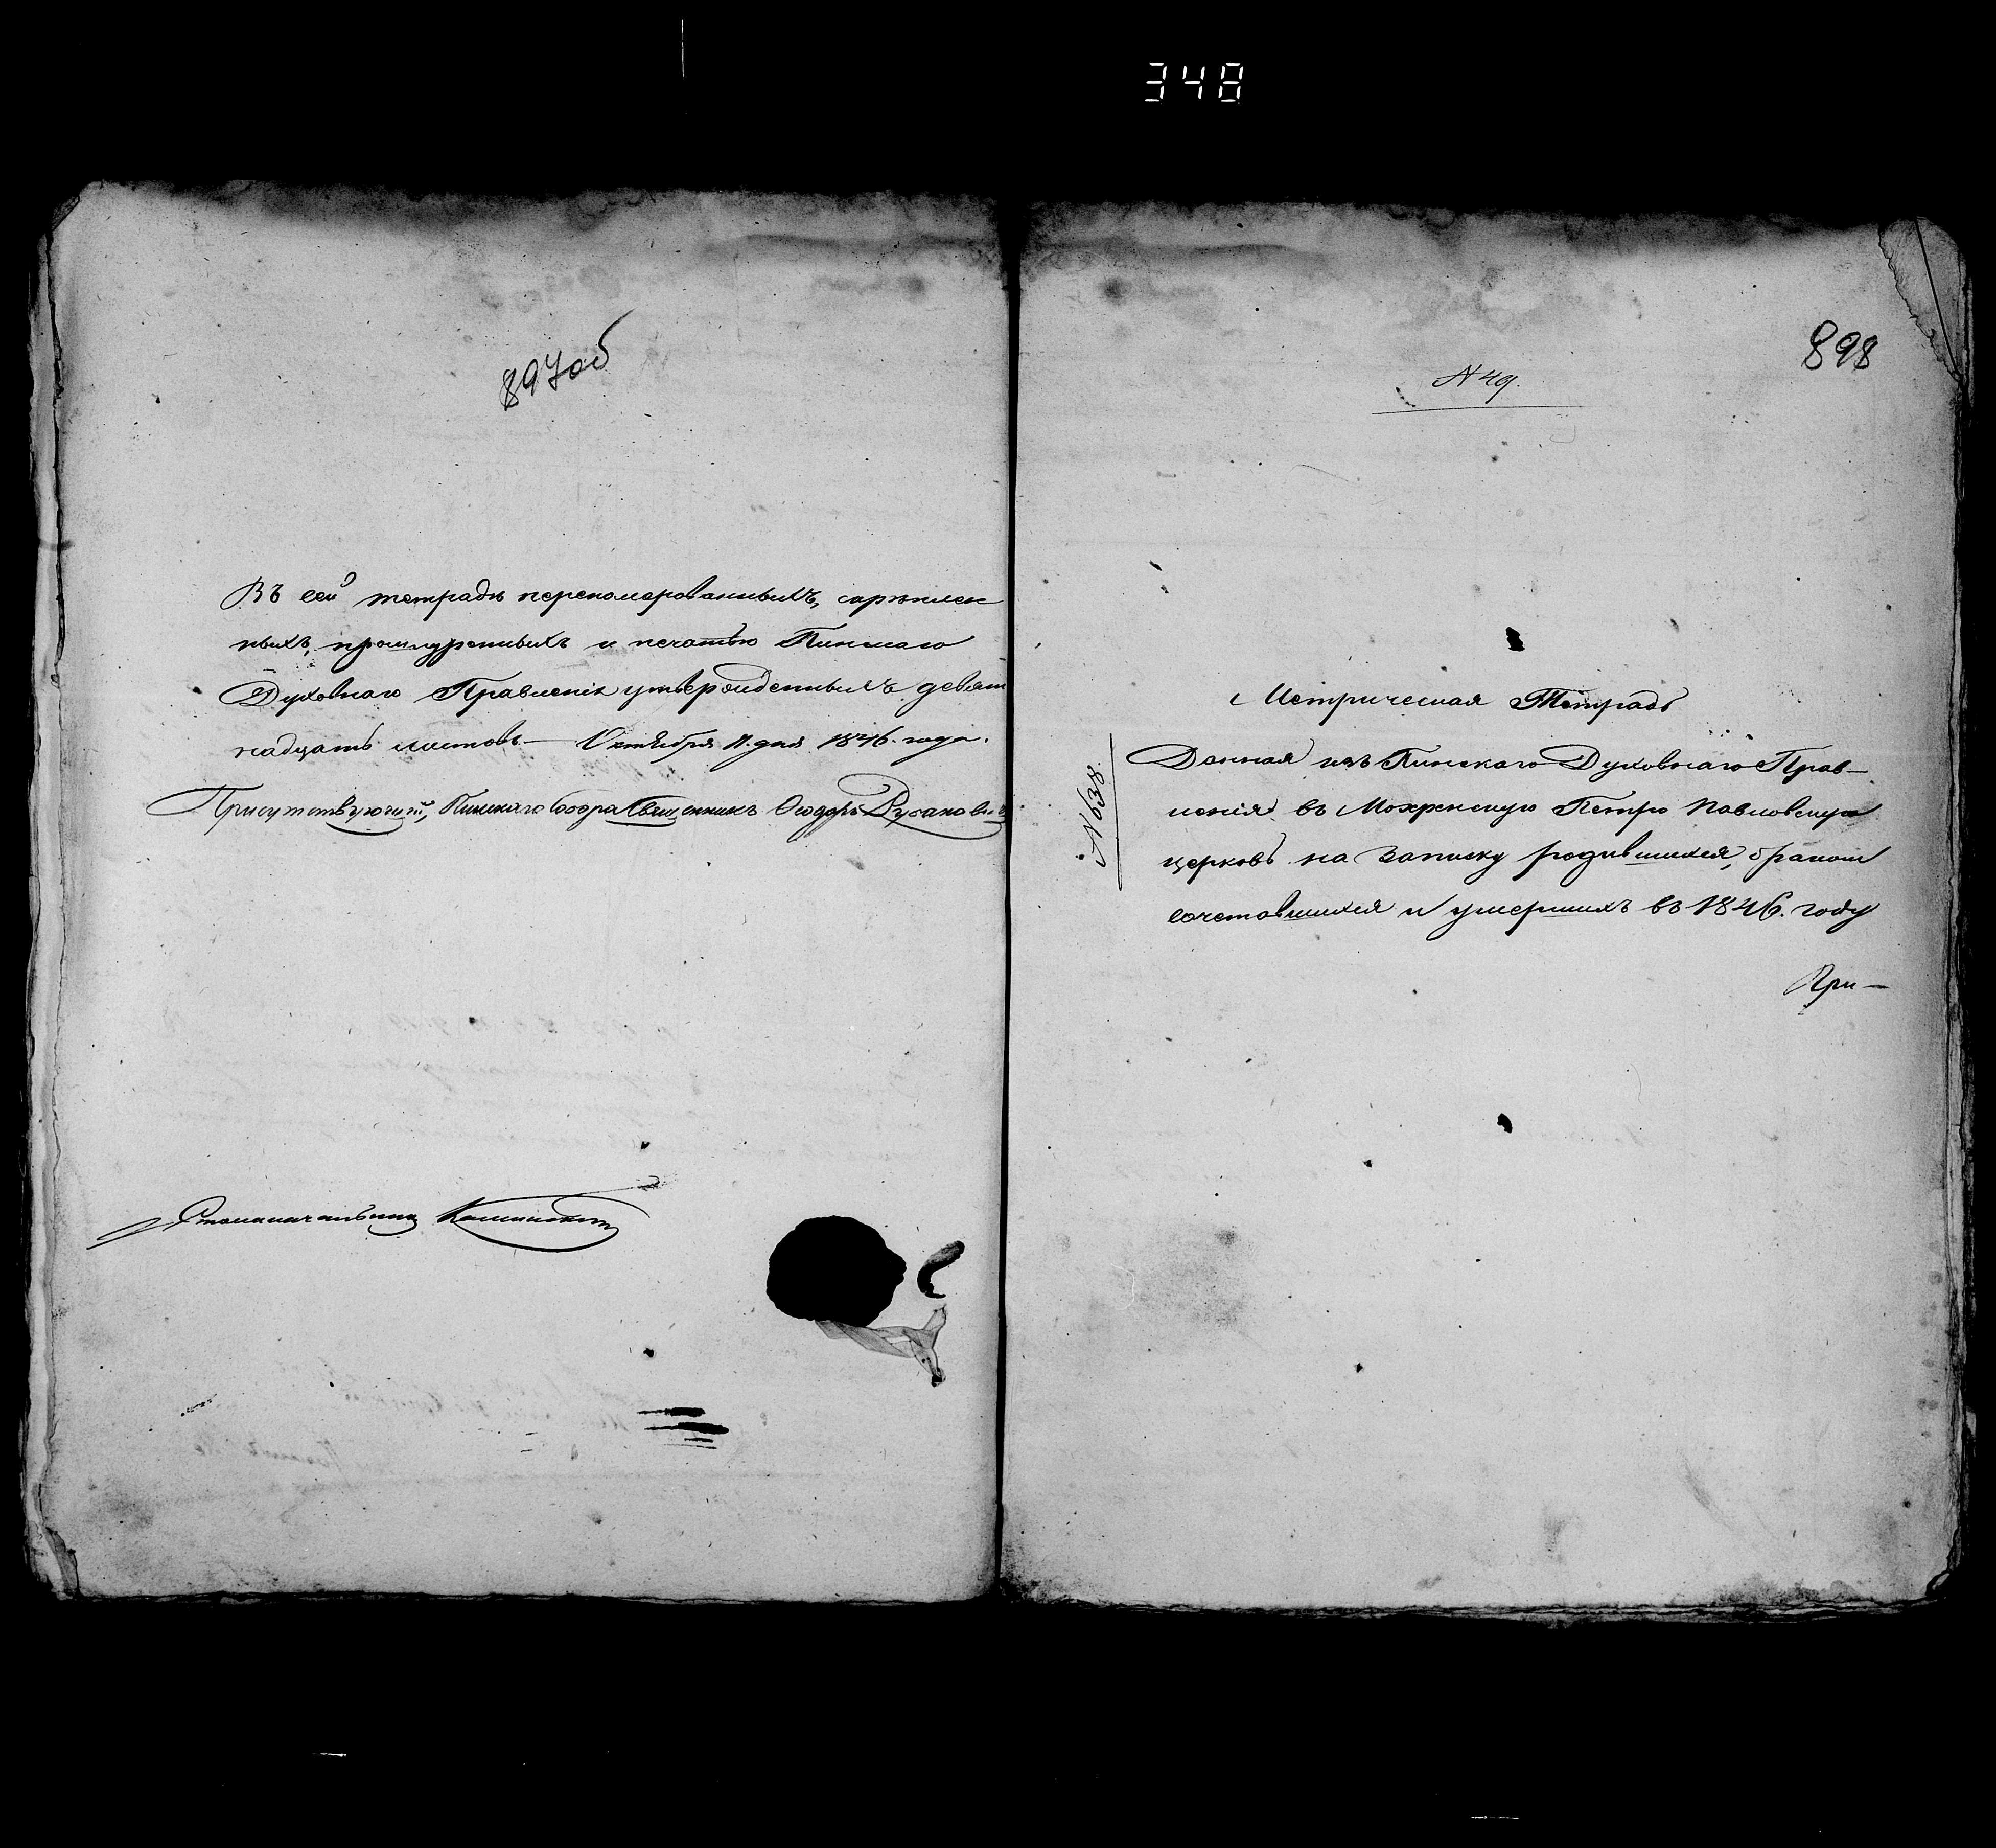 348
897об
Въ сей тетради перенумерованныхъ, скрѣплен
ныхъ, прошнурованныхъ и печатью Пинскаго
Духовнаго Правленія утвержденныхъ девят
надцать листовъ — Октября 11. дня 1846. года.
Присутствующій, Пинскаго Собора Священникъ Ѳеодоръ Русакови
Столоначальникъ
898
N 49.
Метрическая Тетрадь
N 638.
Данная изъ Пинскаго Духовнаго Прав—
ленія въ Мохренскую Петро Павловскую
церковь на записку родившихся, бракомъ
сочетавшихся и умершихъ въ 1846. году
При—